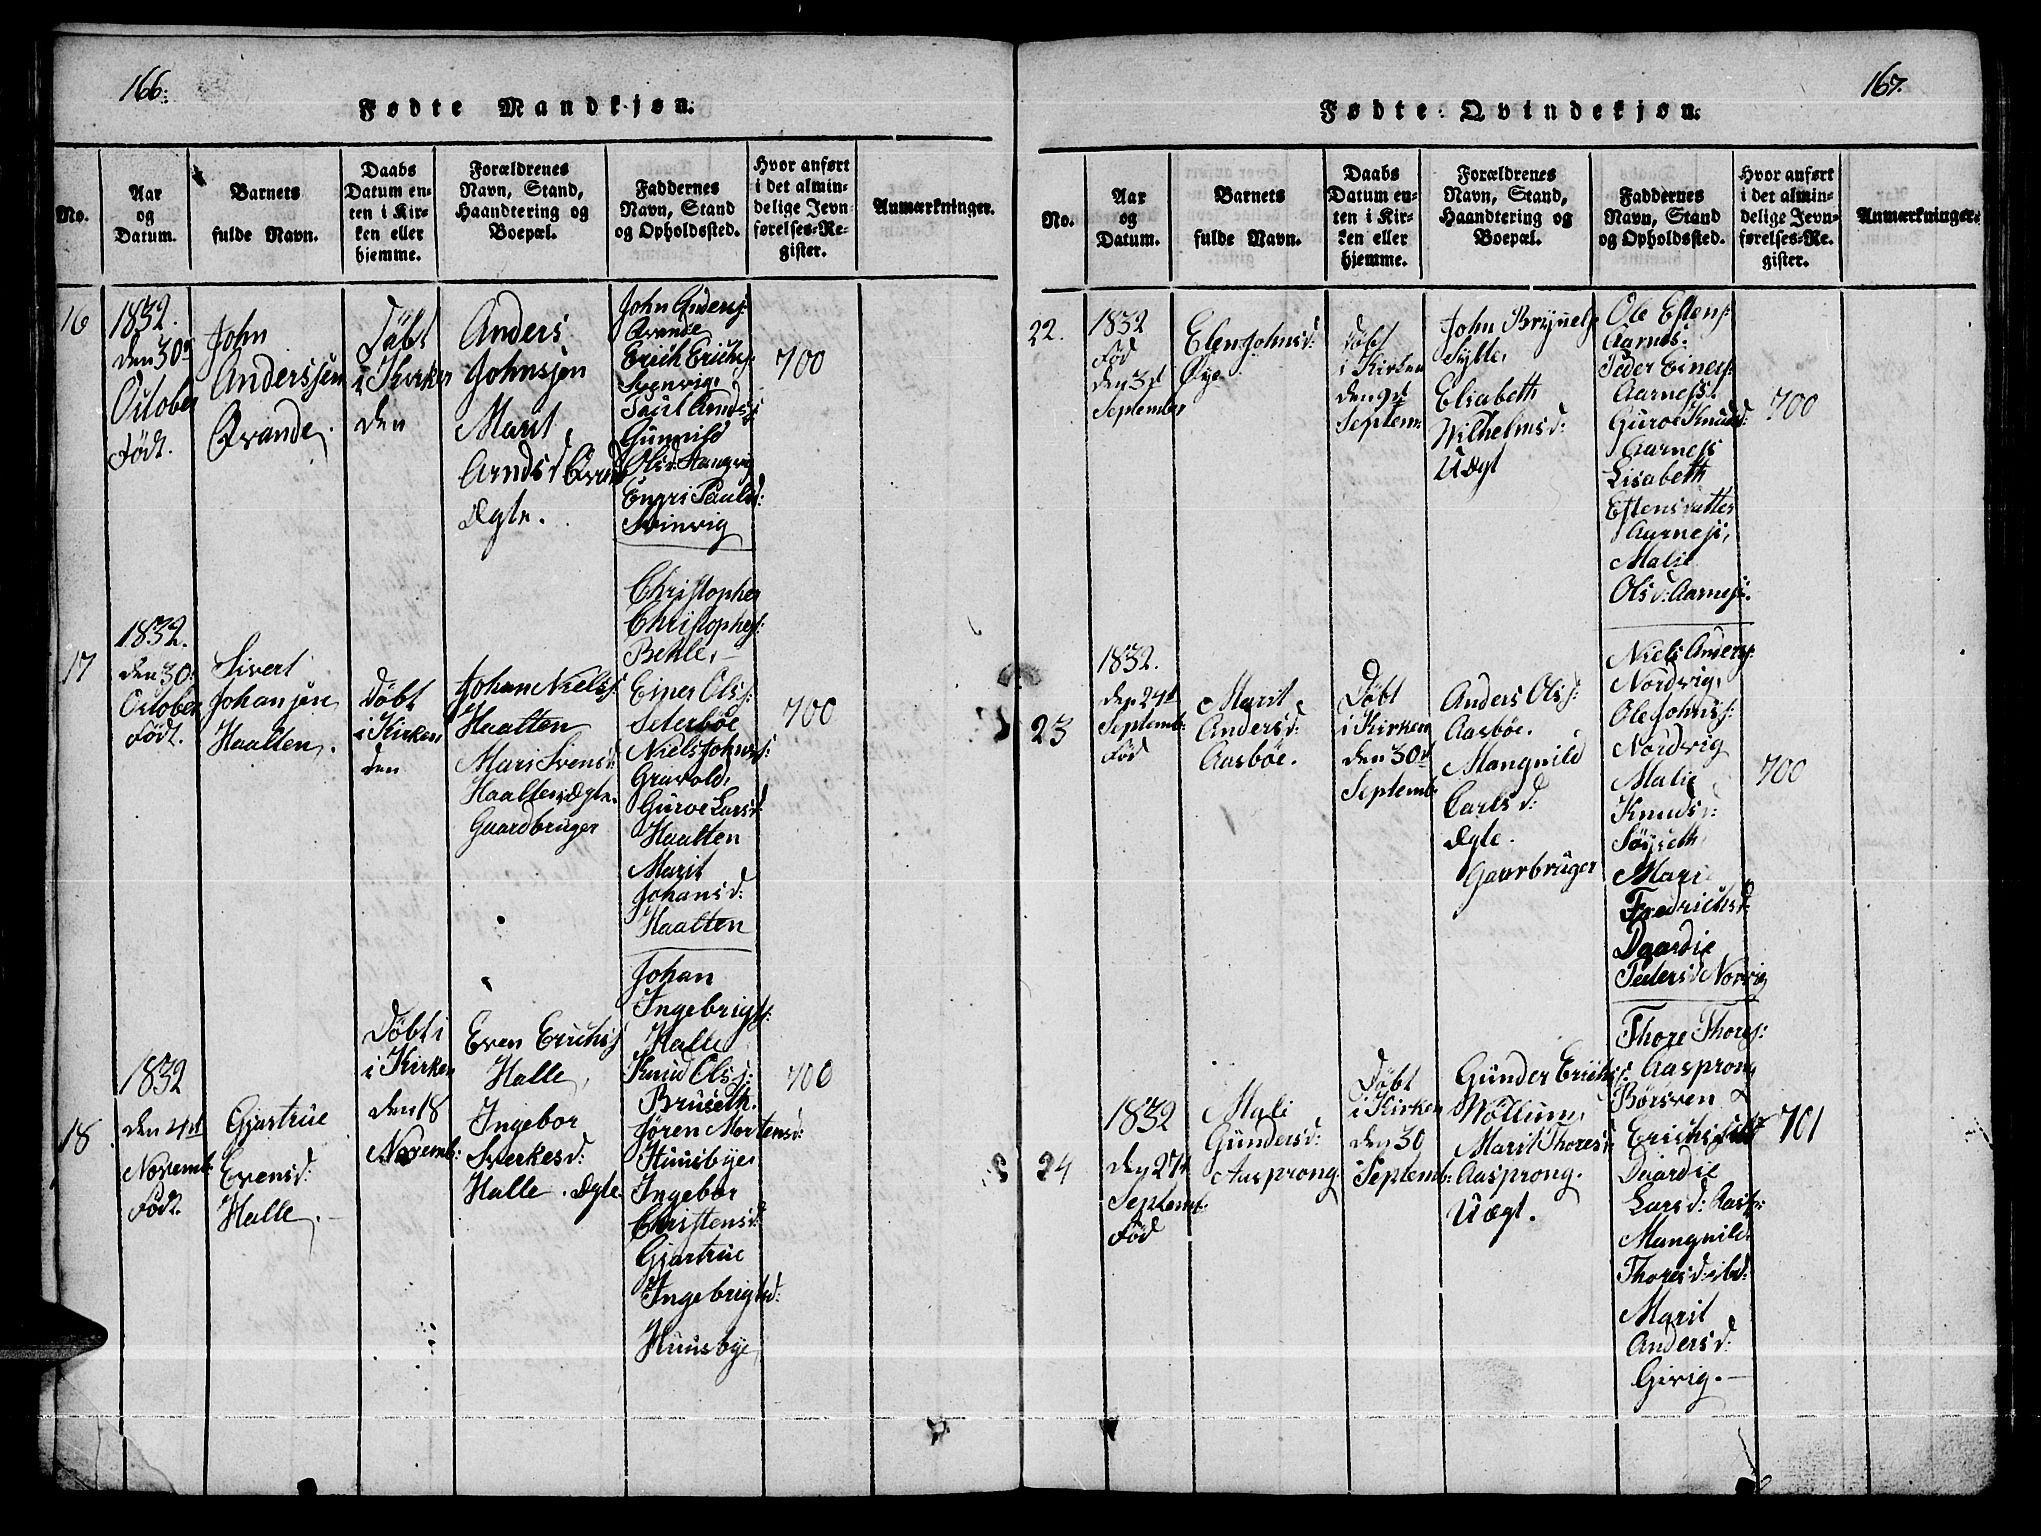 166:
Fødte Mandkjøn.
No.
Aar
og
Datum.
Barnets
fulde Navn.
Daabs
Datum en-
ten i Kir-
ken eller
hjemme.
Forældrenes
Navn, Stand,
Haandtering og
Boepæl.
Faddernes
Navn, Stand
og Opholdssted.
Hvor anført
i det almin-
delige Jevn-
førelses-Re-
gister.
Anmærkninger.
16
1832.
den 30
October
Födt.
John
Anderssen
Qvande
Döbt
i Kirken
den
Anders
Johnsjen
Marit
Arndsd Qvande
Ægte.
John Andersj:
Qvande
Erich Erichs:
Svenvig,
Paul Arndsj:
Gunnild
Olsd: Hangvig
Engri Paulsd:
Svinvig
700
17
1832.
den 30
October
Födt.
Sivert
Johansjen
Haalten,
Döbt
i Kirken
den
Johan Nielss:
Haalten
Mari Svensd:
Haalten, Ægte.
Gaardbruger
Christopher
Christophesj:
Behle,
Einer Olss:
Seterböe
Niels Johnss:
Gravold,
Guroe Larsd:
Haalten
Marit
Johansd:
Haalten
700
18
1832
den 4de
Novemb:
Födt.
Gjartrue
Evensd:
Halle,
Döbt i
i Kirken
den 18
Novemb:
Even Erichsj
Halle,
Ingebor
Sverkesd:
Halle. Ægte
Johan
Ingebrigtsj:
Halle
Knud Olsj:
Bruseth.
Jøren Mortensd:
Huusbye,
Ingebor
Christensd:
Gjartrue
Ingebrigtsd:
Huusbye,
700
167.
Fødte Qvindekjøn.
No.
Aar
og
Datum.
Barnets
fulde Navn.
Daabs
Datum en-
ten i Kir-
ken eller
hjemme.
Forældrenes
Navn, Stand,
Haandtering og
Boepæl.
Faddernes
Navn, Stand
og Opholdssted.
Hvor anført
i det almin-
delige Jevn-
førelses-Re-
gister.
Anmærkninger.
22.
1832
Föd
den 3d
September
Elen Johnsd:
Øye.
Döbt
i Kirken
den 9d
Septem:
John Brynelsj
Sylte,
Elisabeth
Wilhelmsd:
Uægt
Ole Estens:
Aarnes:
Peder Einersj:
Aarness.
Guroe Knudsd:
Aarness
Lisabeth
Estensdatter
Aarnesj,
Malie
Olsd: Aarnesj.
700
23
1832.
den 24d
Septemb:
Föd
Marit
Andersd:
Aasböe.
Döbt
i Kirken
den 30d
Septemb:
Anders Olsj:
Aasböe.
Mangnild
Carlsd:
Ægte.
Gaarbruger
Niels Andersj:
Nordvig,
Ole Johnsj:
Nordvig
Malie
Knudsd:
Söyseth
Mari
Fredrichsd:
Daardie
Pedersd Norvig
700
24
1832
den 27d
Septemb:
Föd
Mali
Gundersd:
Aasprong
Döbt
i Kirken
den 30
Septemb:
Gunder Erichsj:
Möllum,
Marit Thoresd:
Aasprong.
Uægt.
Thore Thoresj:
Aasprong
Börsven
Daardie
Larsd:
Mangnild
Thoresd: ibd:
Marit
Andersd:
Girvig.
701